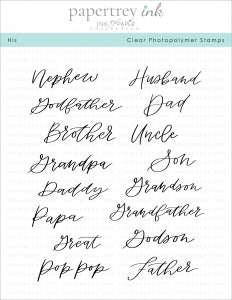 papertrey ink
His
Clear Photopolymer Stamps
Nephew
Husband
Godfather
Dad
Brother
Uncle
Grandpa
Son
Daddy
Grandson
Papa
Grandfather
Great
Godson
Pop Pop
Father